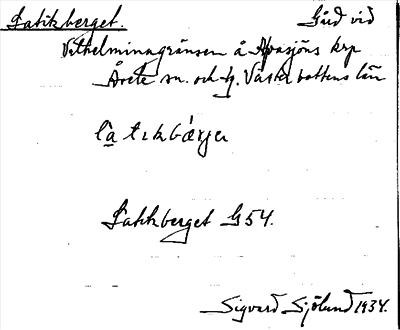 Latikberget. Gård vid
Vilhelminagränsen å Avasjöns krp
Åsele sn. och tg. Västerbottens län
Latikberget G54.
Sigvard Sjölund 1934.